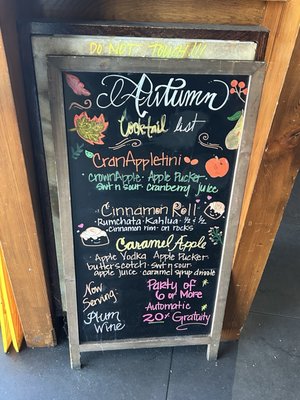 DO NOT TOUCH!!!
Autumn
Cocktail list
CranAppletini
crownApple · Apple Pucker
swt n sour cranberry juice
Cinnamon Roll
Rumchata · Kahlua · ½ & ½
cinnamon rim · on rocks
Caramel Apple
Apple Vodka Apple Pucker
butterscotch · swt n sour
apple juice · caramel syrup drizzle
Now
Serving:
Plum
Wine
Party of
6 or more
Automatic
20% Gratuity